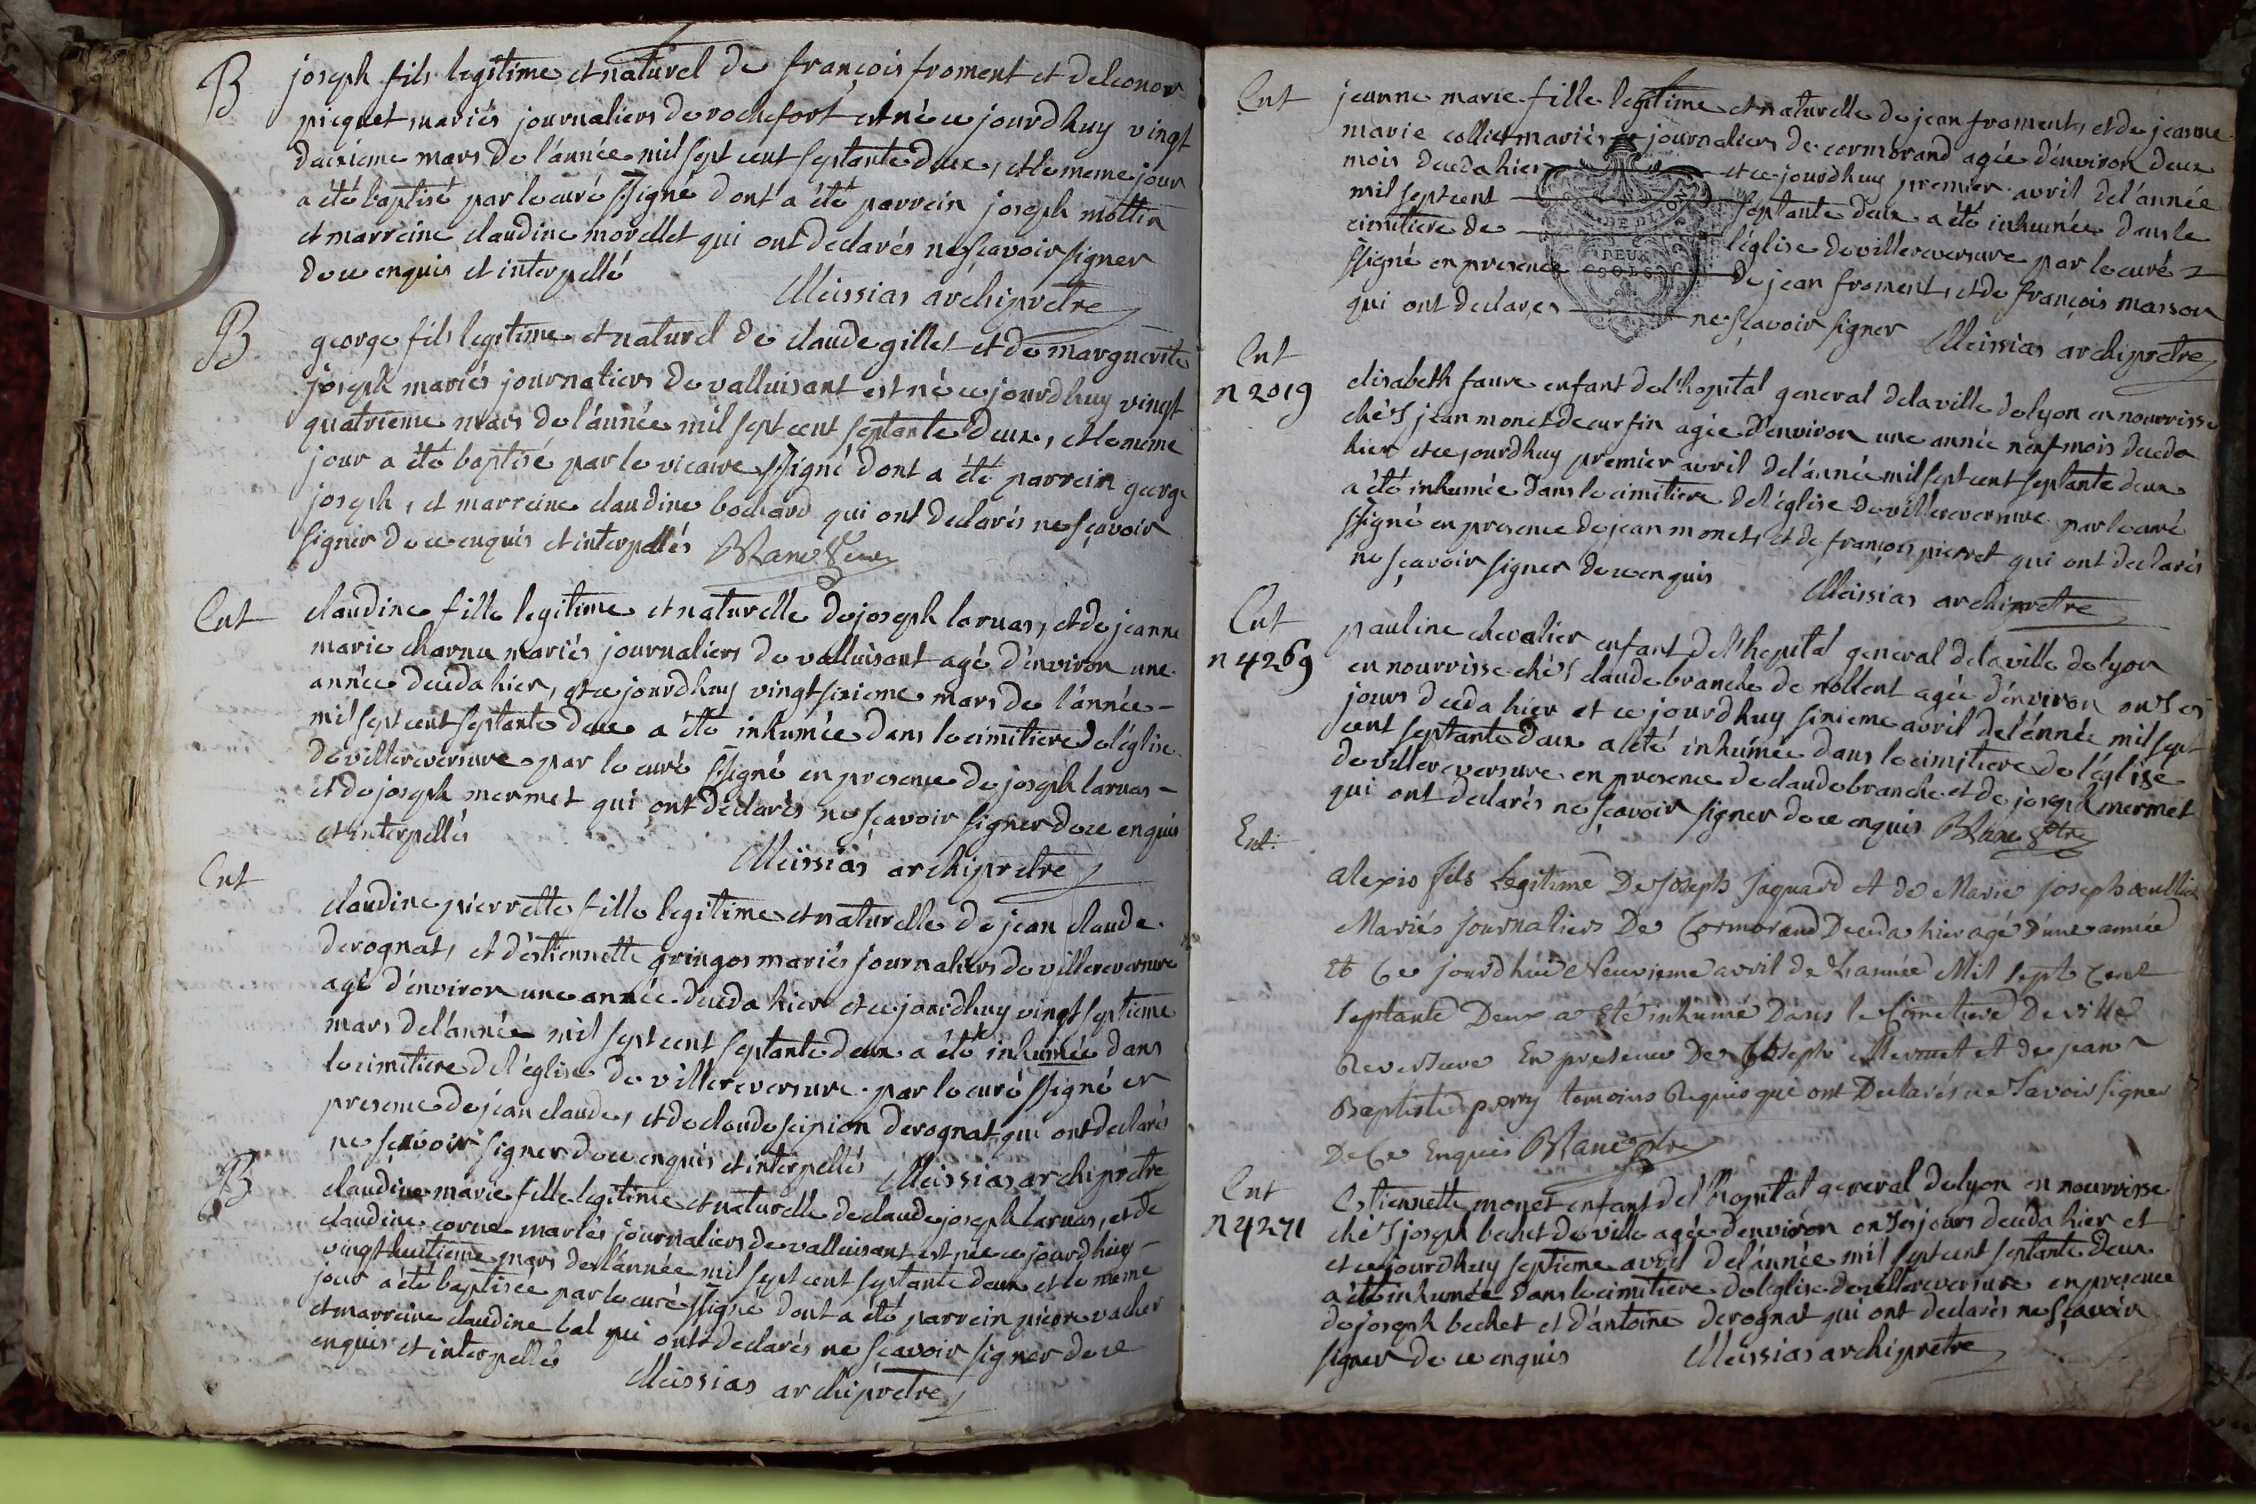 B
joseph fils legitime et naturel de françois froment et deleonor
picquet, mariés journaliers de rochefort est né ce jourdhuy vingt
deuxieme mars de l'année mil sept cent septante deux, et le meme jour
a été baptisé par le curé ssigné dont a été parrein joseph mottin
et marreine claudine morellet qui ont declarés ne sçavoir signer
de ce enquis et interpellé
Meissias archipretre
B
george fils legitime et naturel de claude gillet et de marguerite
joseph mariés journaliers de valluisant est né ce jourdhuy vingt
quatrieme mars de l'année mil sept cent septante deux, et le meme
jour a été baptisé par le vicaire ssigné dont a été parrein george
joseph, et marreine claudine bochard qui ont declarés ne sçavoir
signer de ce enquis et interpellés
Ent
claudine fille legitime et naturelle de joseph laruas, et de jeanne
marie charnu mariés journaliers de valluisant agé d'environ une
année deceda hier, et ce jourdhuy vingt sixieme mars de l'année
mil sept cent septante deux a été inhumée dans le cimitiere de l'église
de villereversure par le curé ssigné en presence de joseph laruas
et de joseph mermet qui ont declarés ne sçavoir signer de ce enquis
et interpellés
Meissias archipretre
Ent
claudine pierrette fille legitime et naturelle de jean claude
derognat, et d'estiennette gringos mariés journaliers de villereversure
agé d'environ une année deceda hier et ce jourdhuy vingt septieme
mars de l'année mil sept cent septante deux a été inhumée dans
le cimitiere de l'église de villereversure par le curé ssigné en
presence de jean claude, et de claude scipion derognat, qui ont declarés
ne sçavoir signer de ce enquis et interpellés
Meissias archipretre
B
claudine marie fille legitime et naturelle de claude joseph laruas, et de
claudine corne mariés journaliers de valluisant est née ce jourdhuy
vingt huitieme mars de l'année mil sept cent septante deux et le meme
jour a été baptisée par le curé ssigné dont a été parrein pierre vacher
et marreine claudine bal qui ont declarés ne sçavoir signer de ce
enquis et interpellés
Meissias archipretre
Ent
jeanne marie fille legitime et naturelle de jean froment, et de jeanne
marie colliet mariés journaliers de cormorand agée d'environ deux
mois deceda hier et ce jourdhuy premier avril de l'année
mil sept cent septante deux a été inhumée dans le
cimitiere de l'église de villereversure par le curé
ssigné en presence de jean froment, et de françois masson
qui ont declarés ne sçavoir signer
Meissias archipretre
DEUX
SOLS
Ent
n 2019
elisabeth faure enfant de l'hopital general de la ville de lyon en nourrisse
chès jean monet de curfin agée d'environ une année neuf mois deceda
hier et ce jourdhuy premier avril de l'année mil sept cent septante deux
a été inhumée dans le cimitiere de l'église de villereversure par le curé
ssigné en presence de jean monet, et de françois pierret qui ont declarés
ne sçavoir signer de ce enquis
Meissias archipretre
Ent
n 4269
pauline chevalier enfant de l'hopital general de la ville de lyon
en nourrisse chès claude branche de nollent agée d'environ onses
jours deceda hier et ce jourdhuy sixieme avril de l'année mil sept
cent septante deux a été inhumée dans le cimitiere de l'église
de villereversure en presence de claude branche et de joseph mermet
qui ont declarés ne sçavoir signer de ce enquis
Ent.
alexis fils Legitime De Joseph Jaquard et de Marie joseph
Mariés journaliers De Cormorand Deceda hier agé D'une année
Et Ce jourdhui Neuvieme avril de L'année Mil sept Cent
septante Deux a Eté inhumé Dans le Cimetiere De Ville
Reversure En presence De Joseph Mermet et de jean
Baptiste perry temoins Requis qui ont Declarés ne savoir signer
De Ce Enquis
Ent
n 4271
Estiennette monet enfant de l'hopital general de lyon en nourrisse
chès joseph bechet de ville agée d'environ onses jours deceda hier et
et ce jourdhuy septieme avril de l'année mil sept cent septante deux
a été inhumée dans le cimitiere de l'église de villereversure en presence
de joseph bechet et d'antoine derognat qui ont declarés ne sçavoir
signer de ce enquis
Meissias archipretre